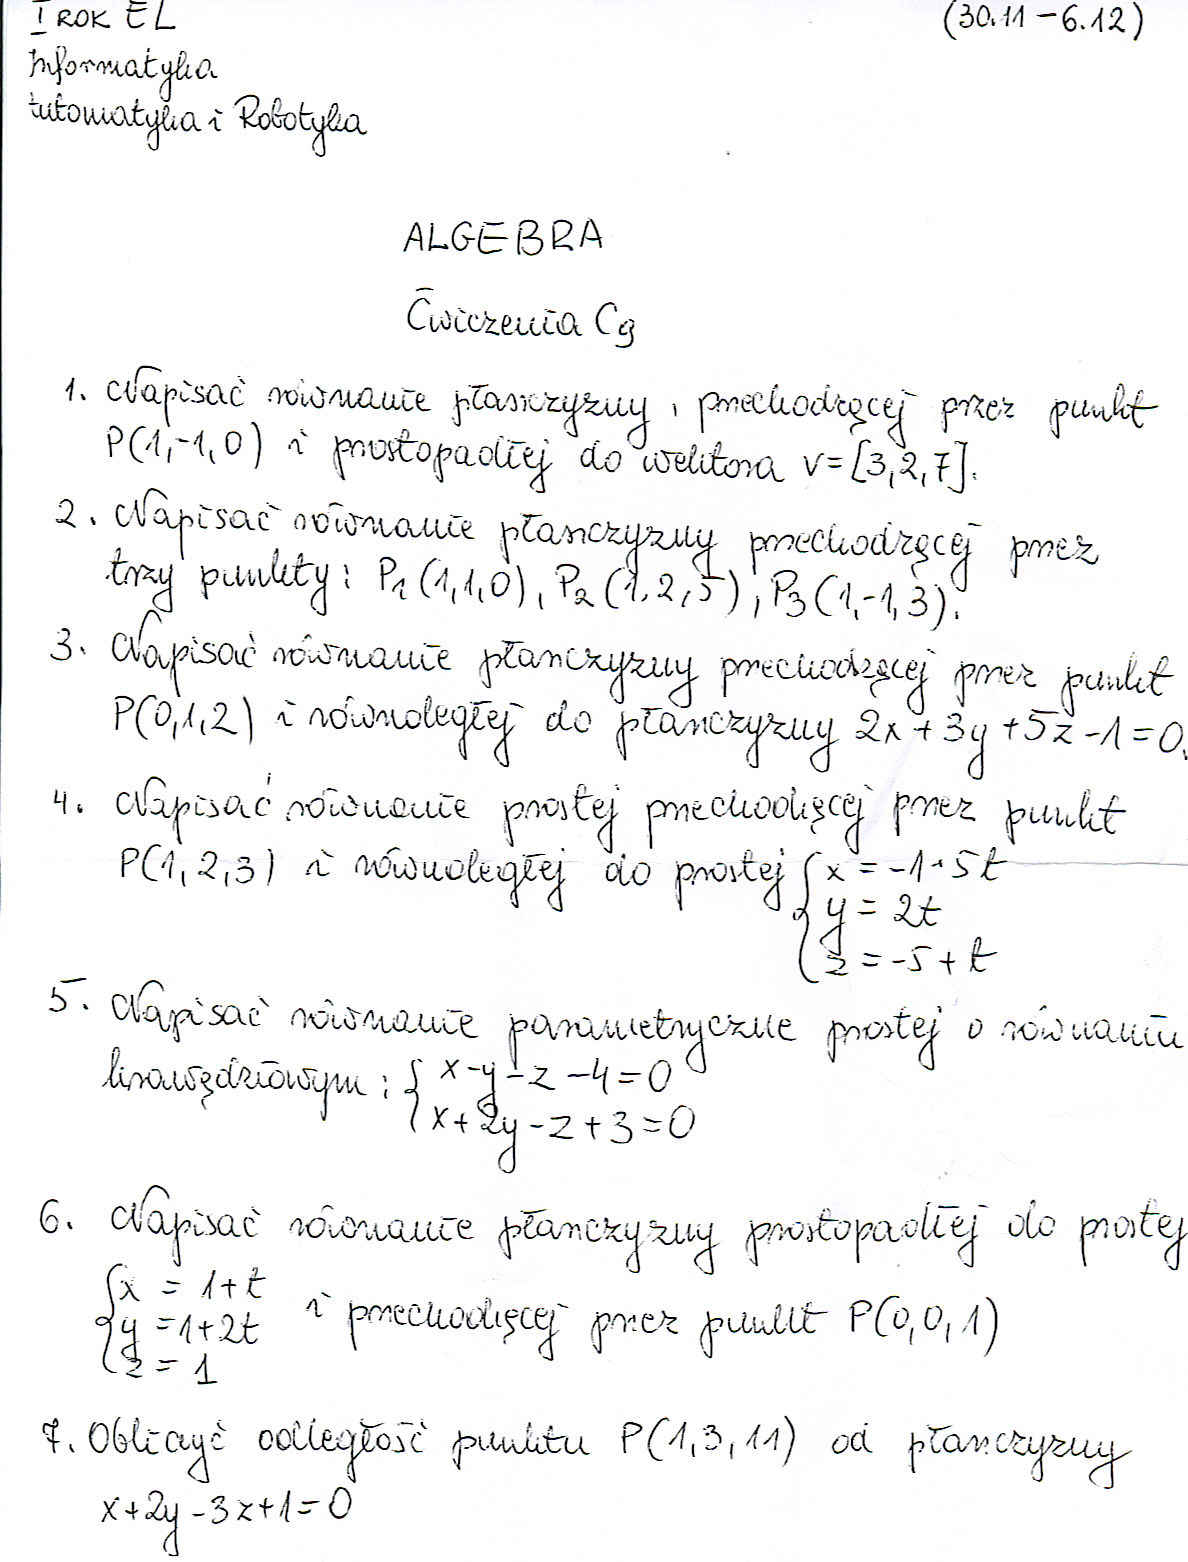 I ROK EL (30.11 – 6.12)
Informatyka
Automatyka i Robotyka
ALGEBRA
Ćwiczenia C9
1. Napisać równanie płaszczyzny, przechodzącej przez punkt
P(1,-1,0) i prostopadłej do wektora v=[3,2,7].
2. Napisać równanie płaszczyzny przechodzącej przez
trzy punkty: P1(1,1,0), P2(1,2,5), P3(1,-1,3).
3. Napisać równanie płaszczyzny przechodzącej przez punkt
P(0,1,2) i równoległej do płaszczyzny 2x+3y+5z-1=0.
4. Napisać równanie prostej przechodzącej przez punkt
P(1,2,3) i równoległej do prostej { x = -1+5t
y = 2t
z = -5+t
5. Napisać równanie parametryczne prostej o równaniu
krawędziowym: { x-y-z-4=0
x+2y-z+3=0
6. Napisać równanie płaszczyzny prostopadłej do prostej
{ x = 1+t
y = 1+2t i przechodzącej przez punkt P(0,0,1)
z = 1
7. Obliczyć odległość punktu P(1,3,11) od płaszczyzny
x+2y-3z+1=0